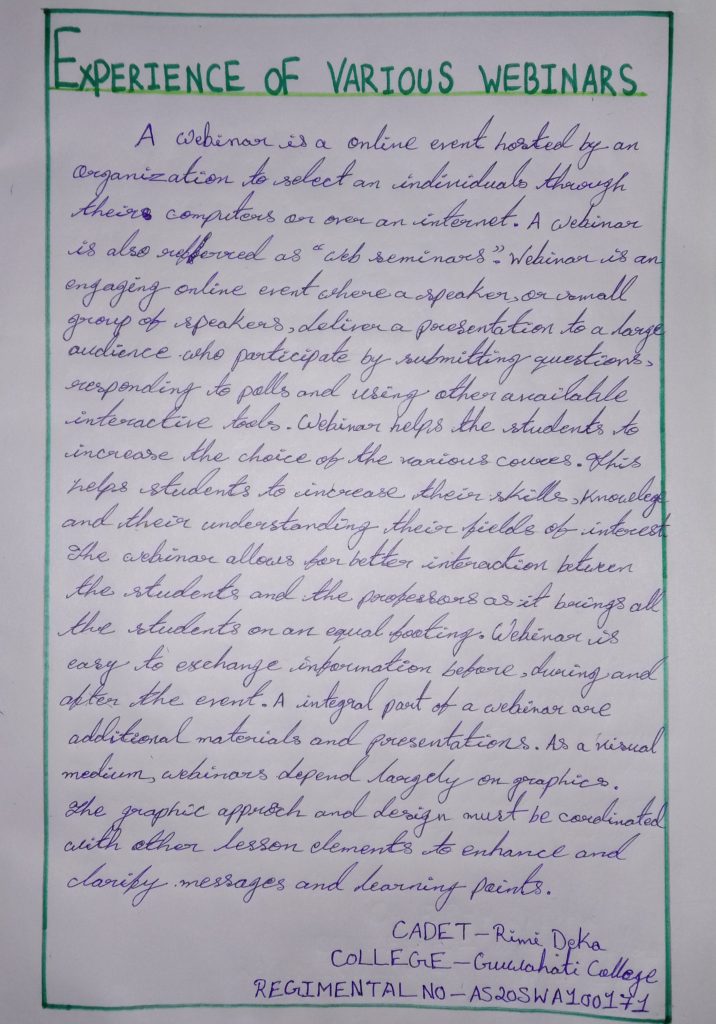 EXPERIENCE OF VARIOUS WEBINARS
A webinar is a online event hosted by an
organization to select an individuals through
their computers or over an internet. A webinar
is also referred as "web seminars". Webinar is an
engaging online event where a speaker, or small
group of speakers, deliver a presentation to a large
audience who participate by submitting questions,
responding to polls and using other available
interactive tools. Webinar helps the students to
increase the choice of the various coures. This
helps students to increase their skills, knowlege
and their understanding their fields of interest.
The webinar allows for better interaction between
the students and the professors as it brings all
the students on an equal footing. Webinar is
easy to exchange information before, during and
after the event. A integral part of a webinar are
additional materials and presentations. As a visual
medium, webinars depend largely on graphics.
The graphic approch and design must be cordinated
with other lesson elements to enhance and
clarify messages and learning points.
CADET-Rimi Deka
COLLEGE-Guwahati College
REGIMENTAL NO-AS20SWA100171